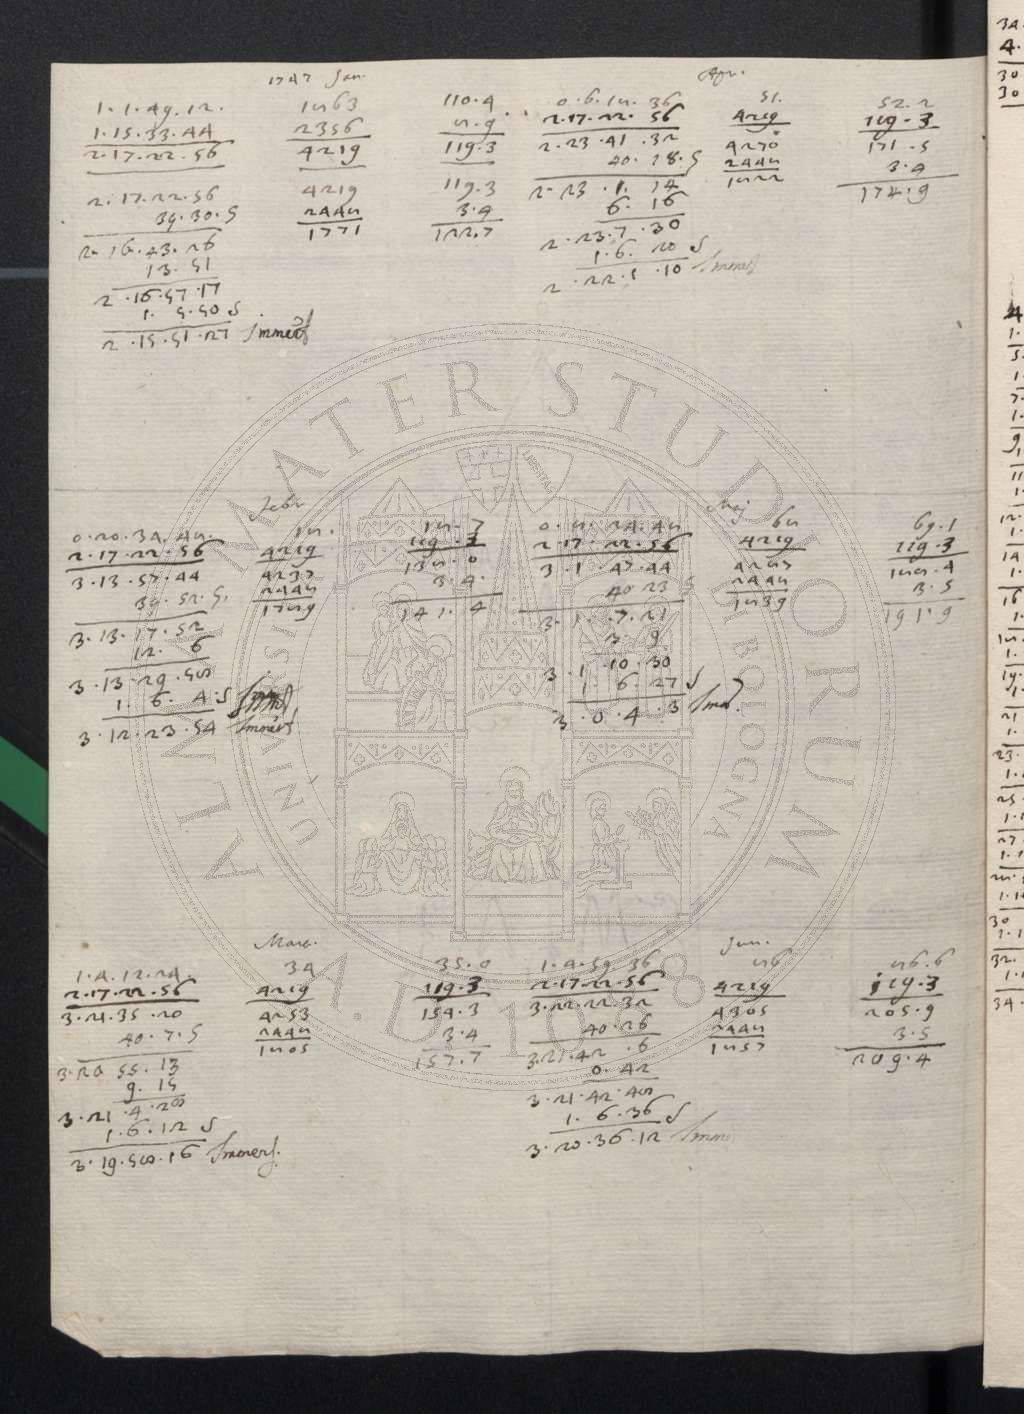 1747 Jan.
1.1.49.12.
1.15.33.44
2.17.22.56
2.17.22.56
39.30.S
2.16.43.26
13.51
2.16.57.17
1.5.50 S
2.15.51.27 Immers
1863
2356
4219
4219
2448
1771
110.4
8.9
119.3
119.3
3.4
122.7
Apr.
0.6.18.36
2.17.22.56
2.23.41.32
40.18.S
2.23.1.14
6.16
2.23.7.30
1.6.20 S
2.22.1.10 Immers
51.
4219
4270
2448
1822
52.2
119.3
171.5
3.4
174.9
Febr
0.26.34.48
2.17.22.56
3.13.57.44
39.52.S.
3.13.17.52
12.6
3.13.29.58
1.6.4.S
3.12.23.54 Immers
18.
4219
4237
2448
1789
18.7
119.3
138.0
3.4.
141.4
Maj
0.14.24.48
2.17.22.56
3.1.47.44
40 23 S
3.1.7.21
3.9
3.1.10.30
1.6.27 S
3.0.4.3 Imm.
68
4219
4287
2448
1839
69.1
119.3
188.4
3.5
191.9
Mart.
1.4.12.24.
2.17.22.56
3.21.35.20
40.7.S
3.20.55.13
9.15
3.21.4.28
1.6.12 S
3.19.58.16 Immers.
34
4219
4253
2448
1805
35.0
119.3
154.3
3.4
157.7
Jun.
1.4.59.36
2.17.22.56
3.22.22.32
40.26
3.21.42.6
0.42
3.21.42.48
1.6.36 S
3.20.36.12 Imme
86
4219
4305
2448
1857
86.6
119.3
205.9
3.5
209.4
ALMA MATER STUDIORUM
A.D. 1088
UNIVERSITÀ DI BOLOGNA
LIBERTAS